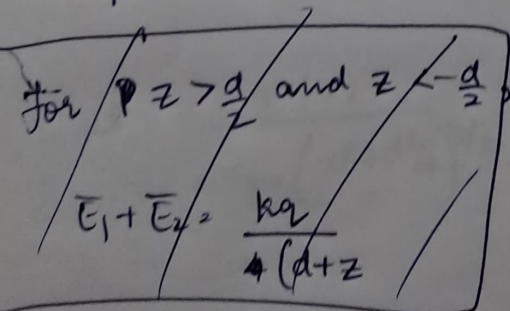 for z > d/2 and z < -d/2
Ē₁ + Ē₂ = kq / 4(d+z